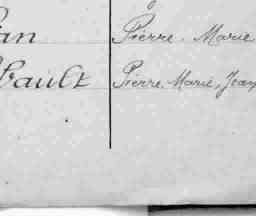 an Pierre. Marie
bault Pierre. Marie, Jean